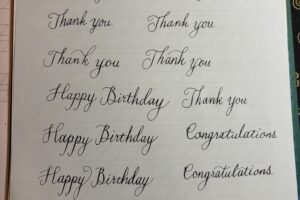 Thank you. Thank you
Thank you Thank you
Happy Birthday Thank you
Happy Birthday Congratulations
Happy Birthday Congratulations.